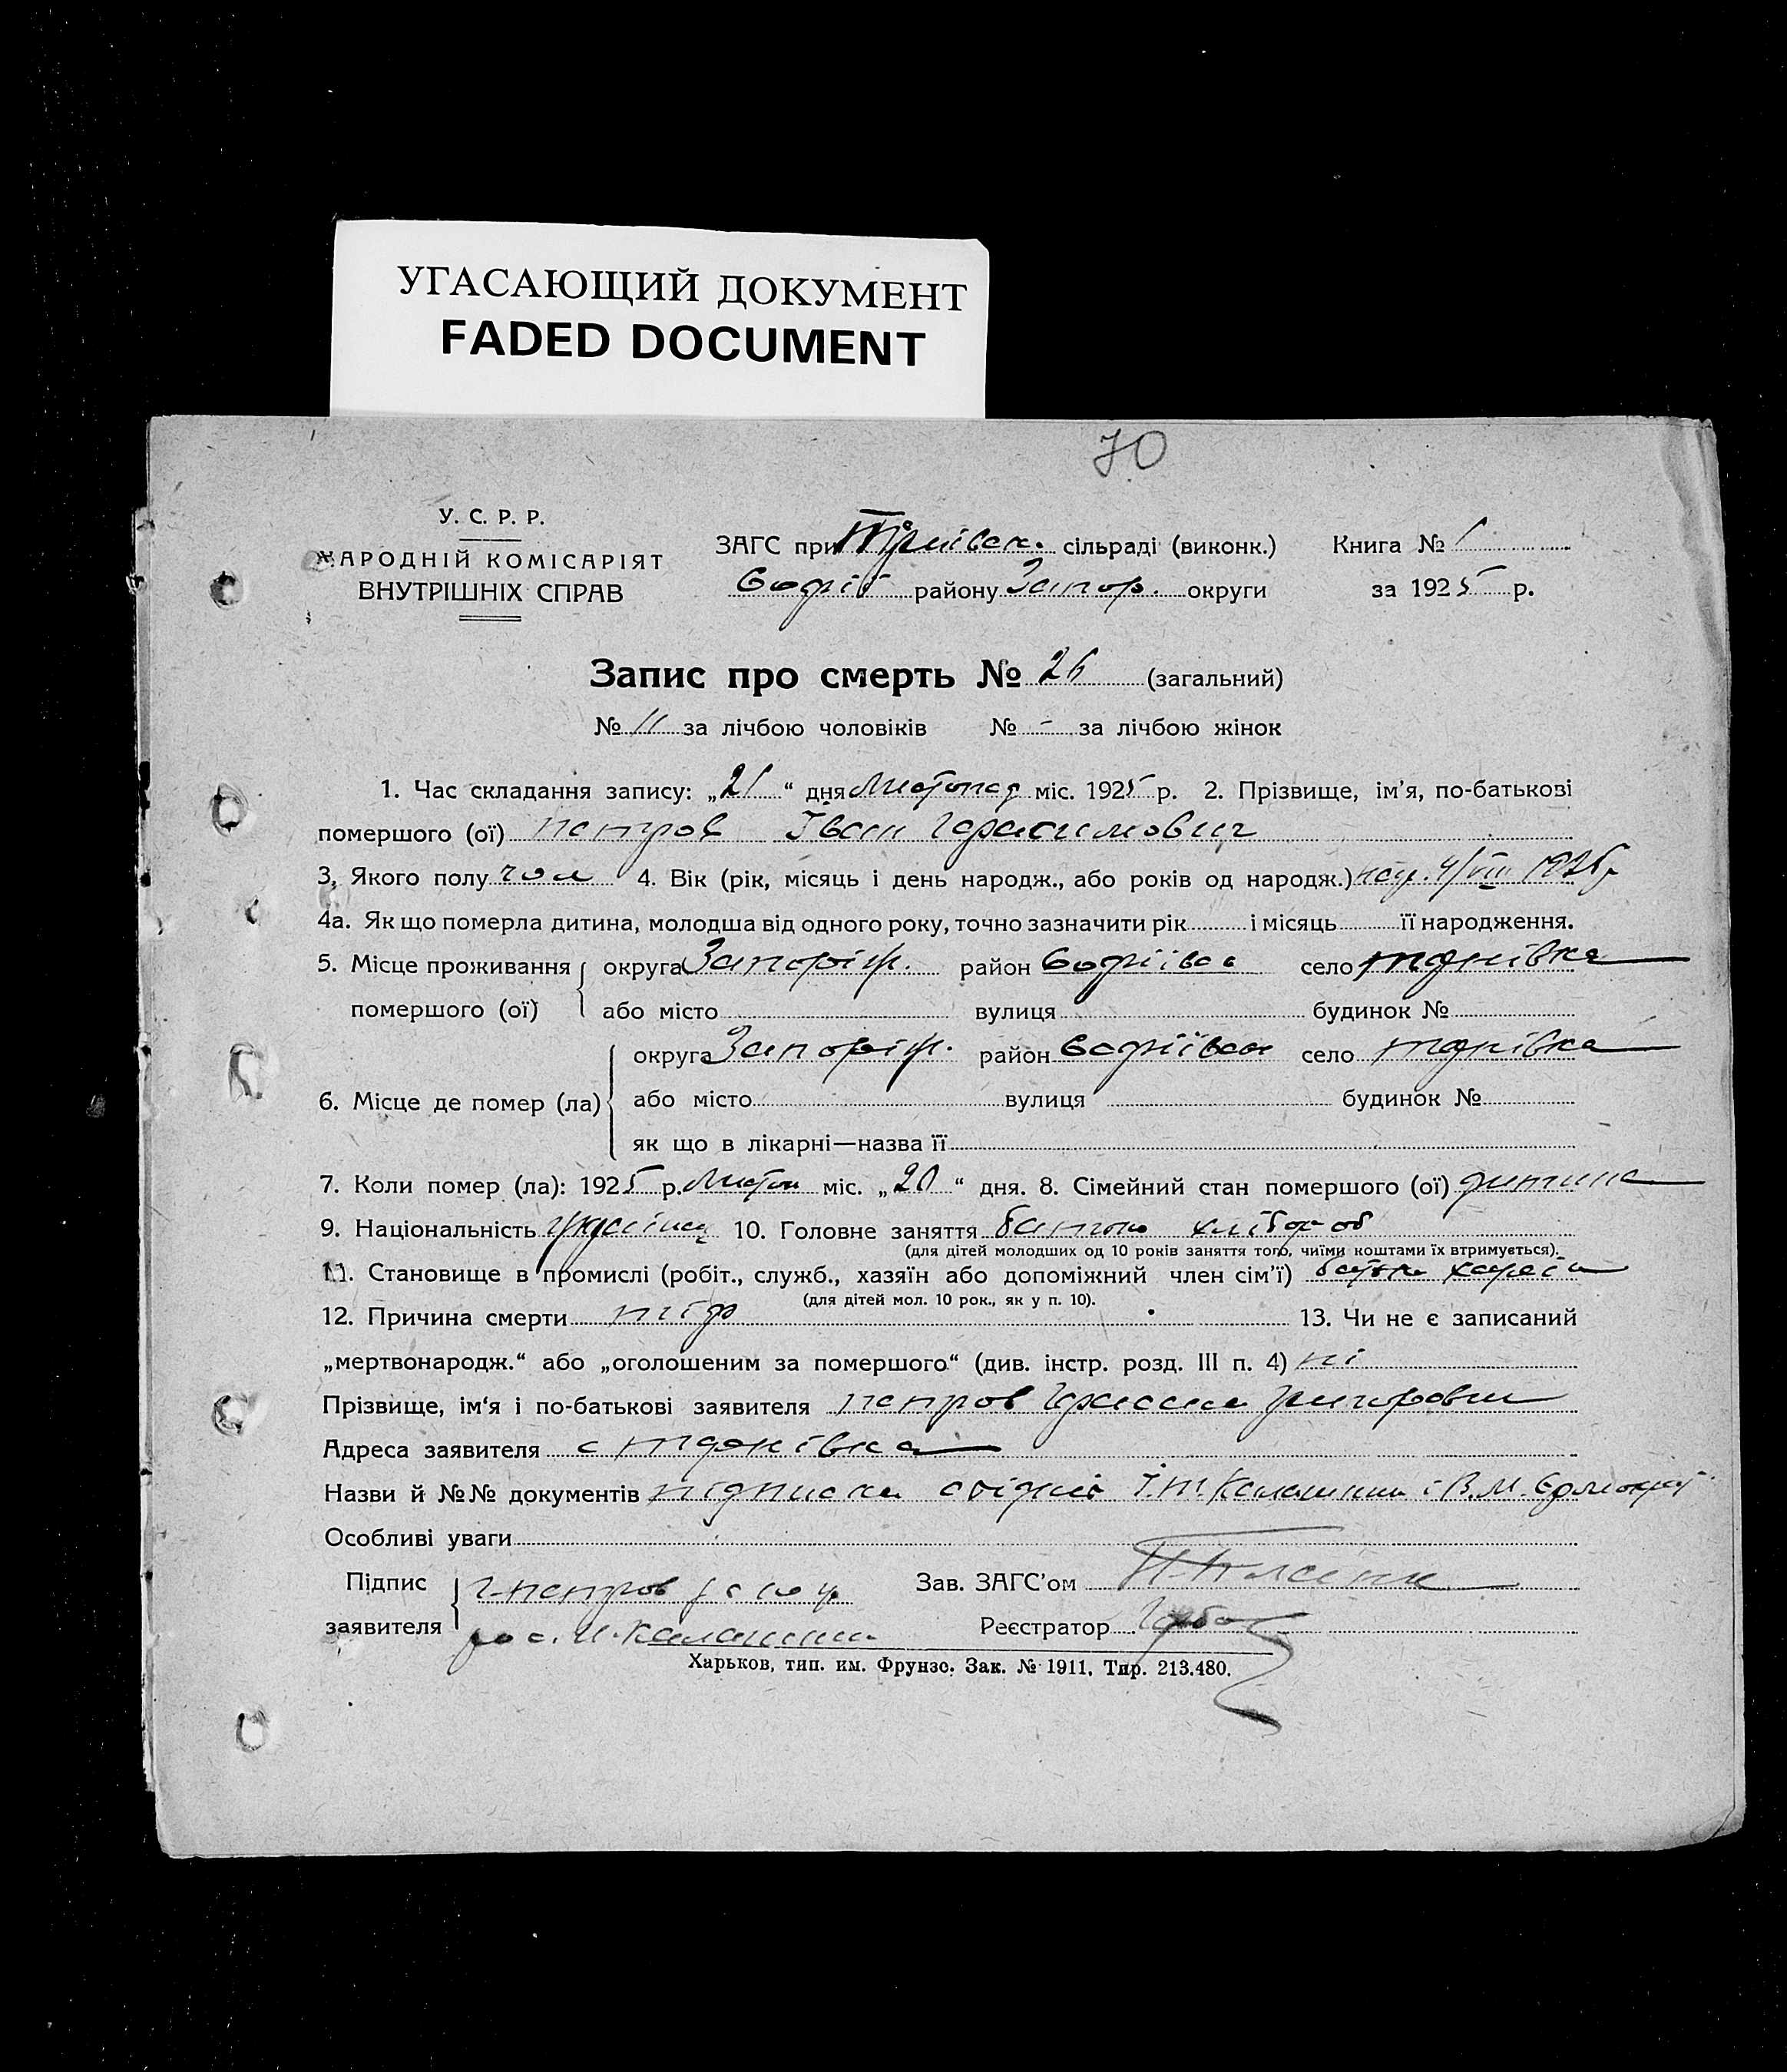 УГАСАЮЩИЙ ДОКУМЕНТ
FADED DOCUMENT
70
У. С. Р. Р.
НАРОДНІЙ КОМІСАРІЯТ
ВНУТРІШНІХ СПРАВ
ЗАГС при сільраді (виконк.) Книга № 1
Софіїв району Запор. округи за 1925 р.
Запис про смерть № 26 (загальний)
№ 11 за лічбою чоловіків № - за лічбою жінок
1. Час складання запису: „21“ дня Листопад міс. 1925 р. 2. Прізвище, ім'я, по-батькові
помершого (ої) петров Іван Герасимович
3, Якого полу чол 4. Вік (рік, місяць і день народж., або років од народж.) нар. 4/VIII 1925 р
4а. Як що померла дитина, молодша від одного року, точно зазначити рік і місяць її народження.
5. Місце проживання округа Запоріж. район Софіївск село
помершого (ої) або місто вулиця будинок №
округа Запоріж. район Софіївск село
6. Місце де помер (ла) або місто вулиця будинок №
як що в лікарні—назва її
7. Коли помер (ла): 1925 р. Листоп міс. „20“ дня. 8. Сімейний стан помершого (ої) дитина
9. Національність 10. Головне заняття батько хлібороб
(для дітей молодших од 10 років заняття того, чиїми коштами їх втримується).
11. Становище в промислі (робіт., служб., хазяїн або допоміжний член сім'ї) батько хазяїн
(для дітей мол. 10 рок., як у п. 10).
12. Причина смерти 13. Чи не є записаний
„мертвонародж.“ або „оголошеним за помершого“ (див. інстр. розд. III п. 4) ні
Прізвище, ім'я і по-батькові заявителя петров Герасим Григорович
Адреса заявителя с
Назви й №№ документів підписка свідків І. П. Калашник і В. М.
Особливі уваги
Підпис Г. петров Зав. ЗАГС'ом
заявителя И. Калашник Реєстратор
Харьков, тип. им. Фрунзе. Зак. № 1911. Тир. 213.480.